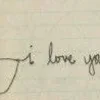 i love yo